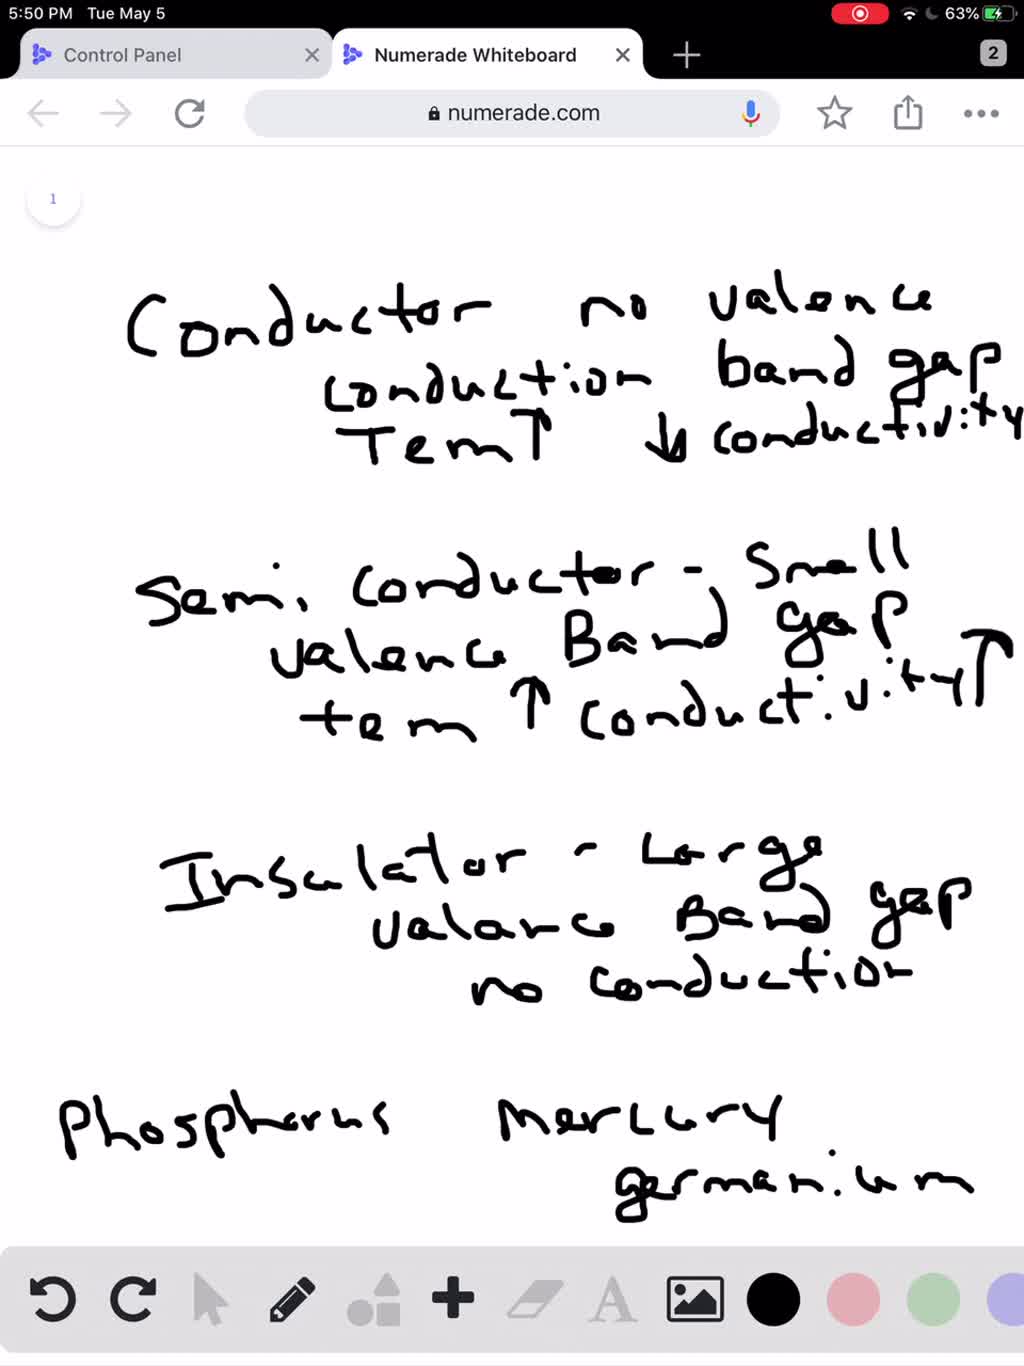 5:50 PM Tue May 5 63%
Control Panel Numerade Whiteboard 2
numerade.com
1
Conductor no valence
conduction band gap
Tem ↑ ↓ conductivity
Semi conductor - Small
valence Band gap
tem ↑ conductivity ↑
Insulator - Large
valance Band gap
no conduction
Phosphorus Mercury
germanium
A